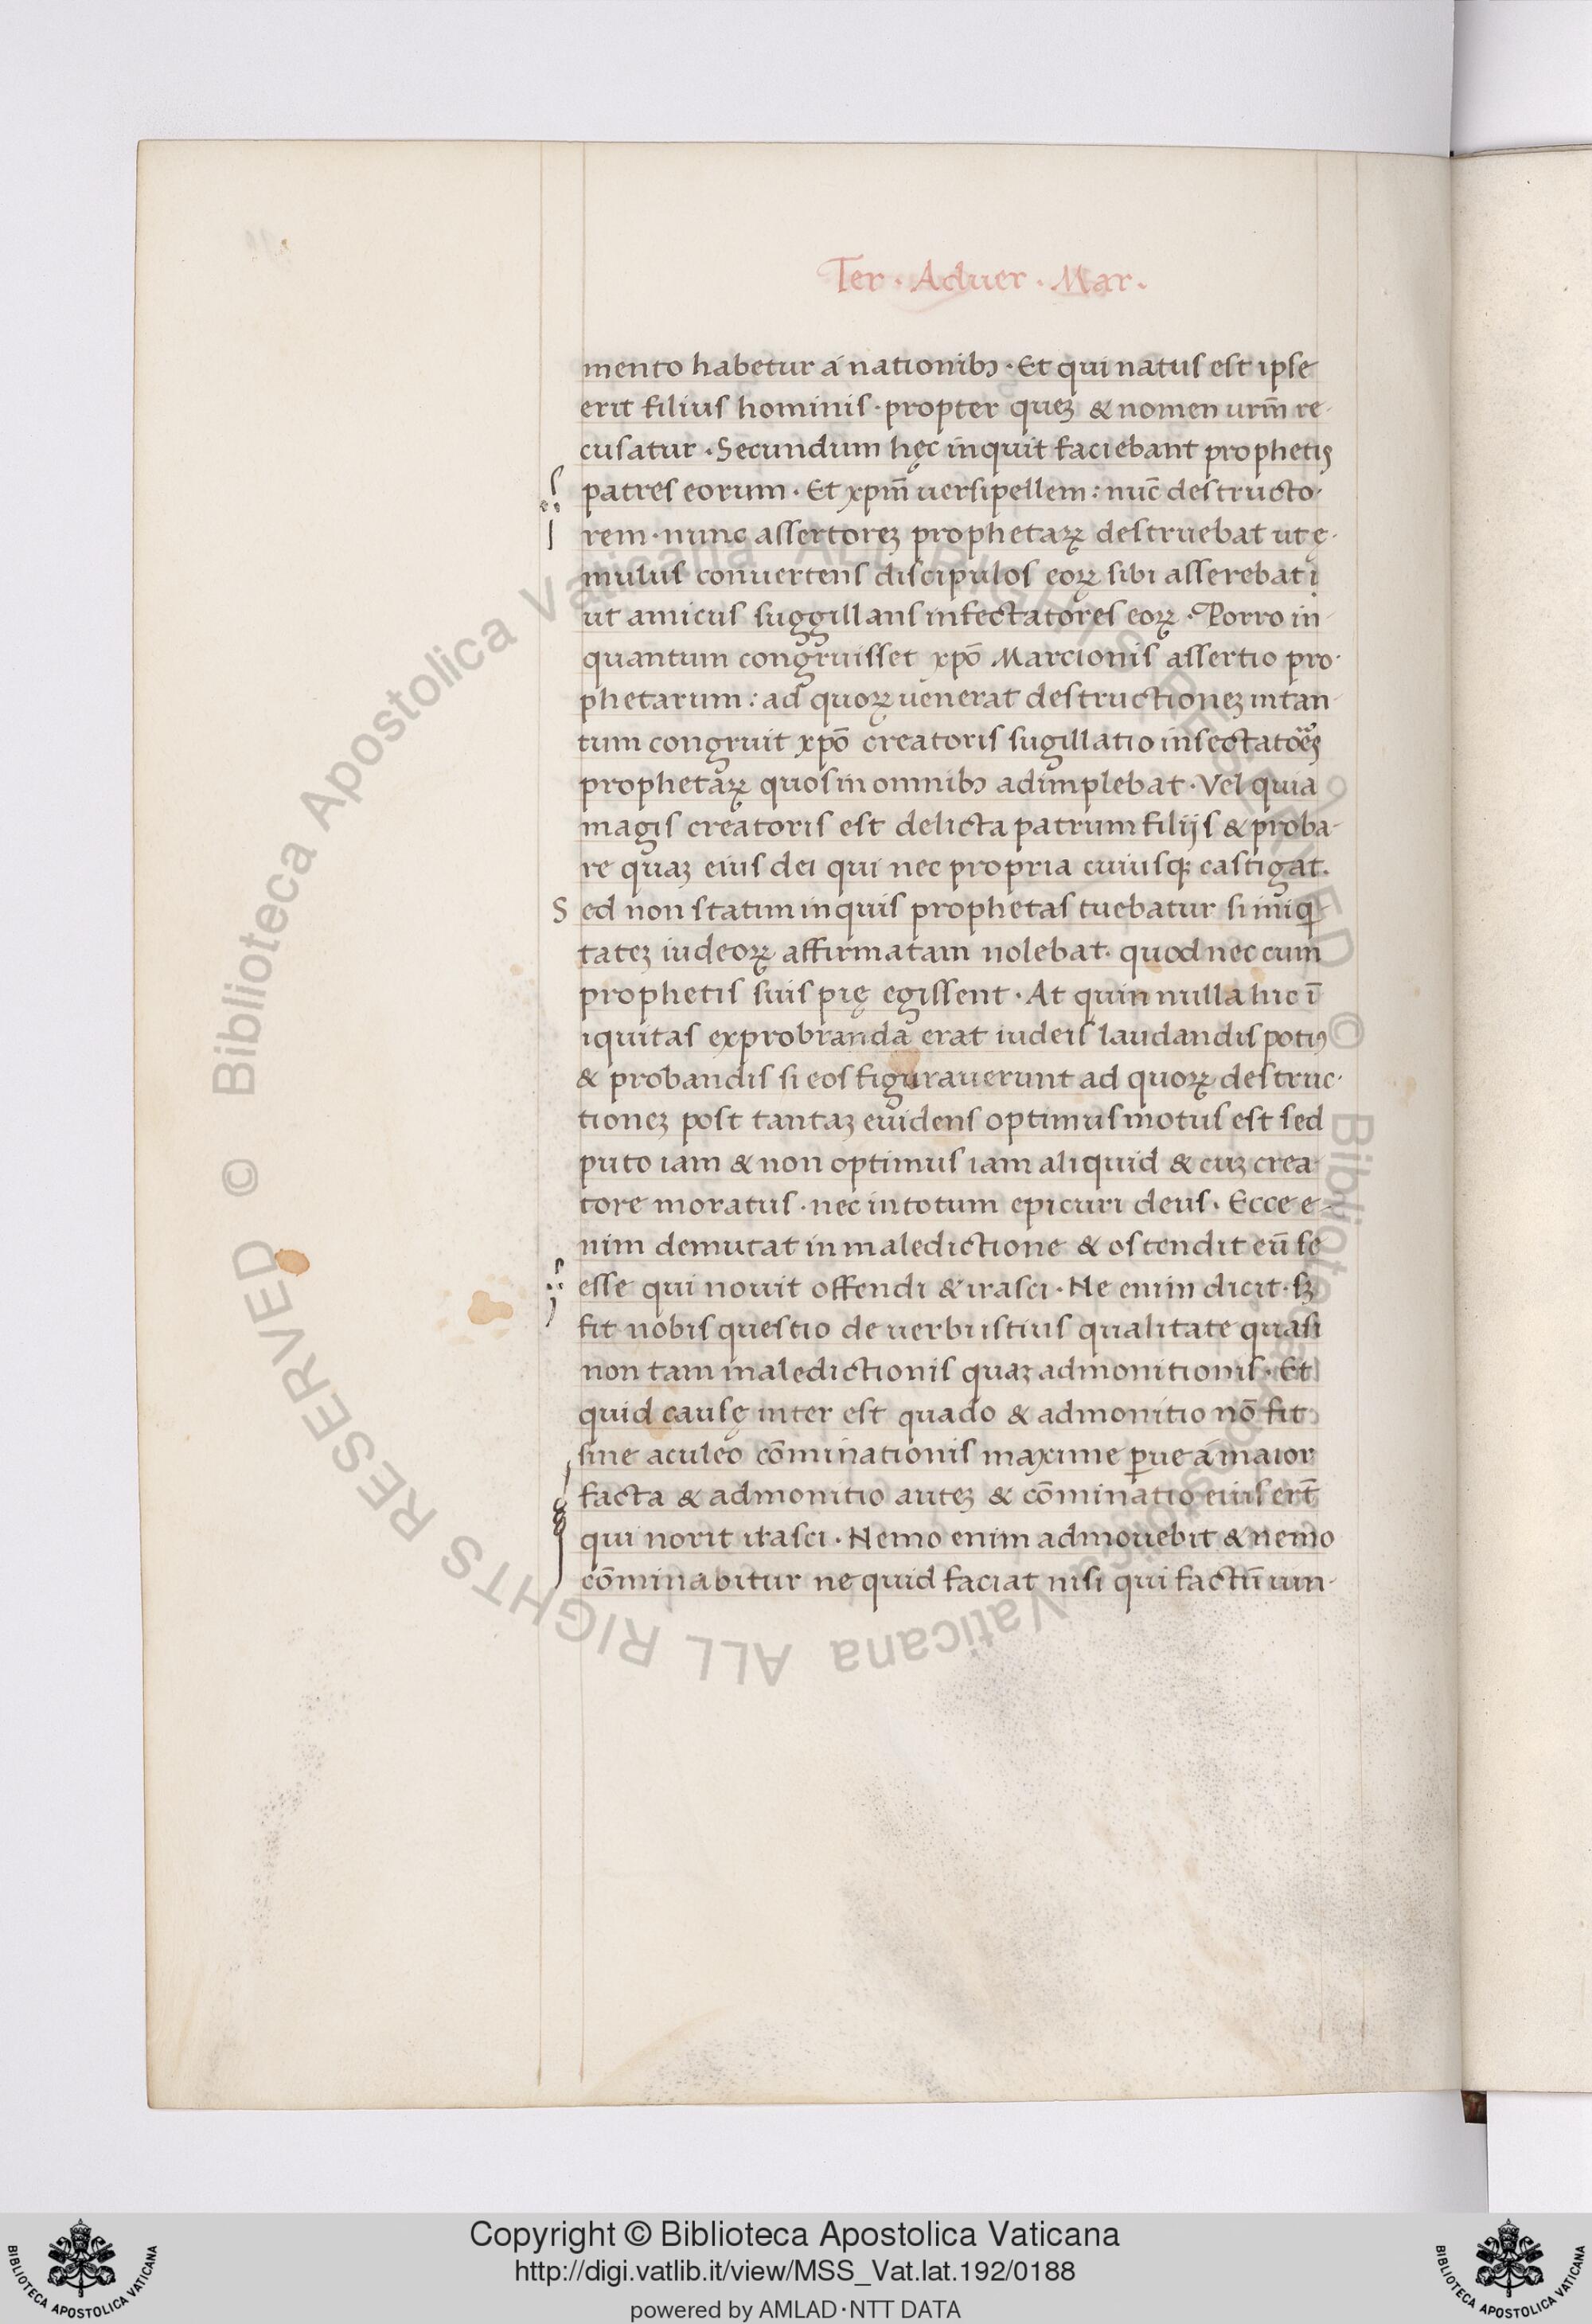 Ter · Aduer · Mar ·
mento habetur á nationibꝫ · Et qui natus est ipse
erit filius hominis · propter queꝫ & nomen urm̄ re-
cusatur · Secundum hęc inquit faciebant prophetis
patres eorum · Et xpm̄ uersipellem : nūc destructo-
rem · nunc assertoreꝫ prophetaꝝ destruebat ut ę-
mulus conuertens discipulos eoꝝ sibi asserebat
ut amicus suggillans insectatores eoꝝ · Porro in
quantum congruisset xpō Marcionis assertio pro-
phetarum : ad quoꝝ uenerat destructioneꝫ in tan-
tum congruit xpō creatoris sugillatio insectatoeꝫ
prophetaꝝ quos in omnibꝫ adimplebat · Vel quia
magis creatoris est delicta patrum filijs & proba-
re quaꝫ eius dei qui nec propria cuiusqꝫ castigat.
Sed non statim inquis prophetas tuebatur si iniq-
tateꝫ iudeoꝝ affirmatam nolebat. quod nec cum
prophetis suis pię egissent · At quin nulla hic ī
iquitas exprobranda erat iudeis laudandis potiꝰ
& probandis si eos figurauerunt ad quoꝝ destruc-
tioneꝫ post tantaꝫ euidens optimus motus est sed
puto iam & non optimus iam aliquid & cuꝫ crea-
tore moratus · nec in totum epicuri deus · Ecce e-
nim demutat in maledictione & ostendit eū se
esse qui nouit offendi & irasci · Ne enim dicit · sꝫ
fit nobis questio de uerbi istius qualitate quasi
non tam maledictionis quaꝫ admonitionis · Et
quid causę inter est quado & admonitio nō fit
sine aculeo cōminationis maxime ꝑ ue á maior
facta & admonitio auteꝫ & cōminatio eius ert̄
qui norit irasci · Nemo enim admouebit & nemo
cōminabitur ne quid faciat nisi qui factū uin-
© Biblioteca Apostolica Vaticana ALL RIGHTS RESERVED © Biblioteca Apostolica Vaticana ALL RIGHTS RESERVED
Copyright © Biblioteca Apostolica Vaticana
http://digi.vatlib.it/view/MSS_Vat.lat.192/0188
powered by AMLAD·NTT DATA
BIBLIOTECA APOSTOLICA VATICANA
BIBLIOTECA APOSTOLICA VATICANA